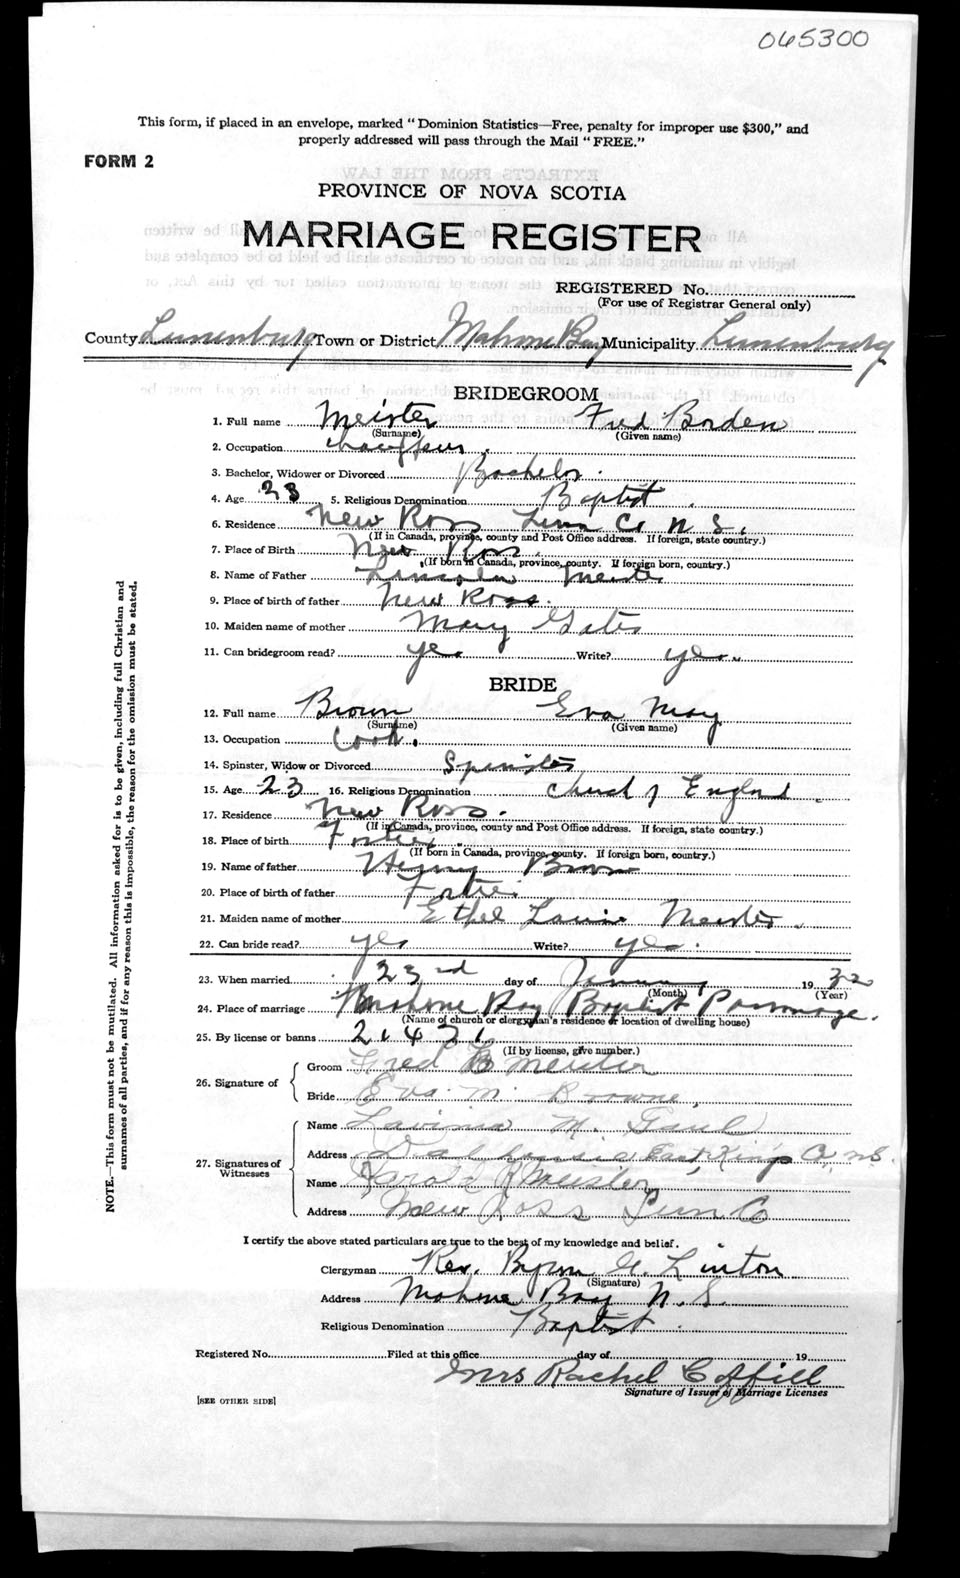 065300
This form, if placed in an envelope, marked "Dominion Statistics—Free, penalty for improper use $300," and
properly addressed will pass through the Mail "FREE."
FORM 2
PROVINCE OF NOVA SCOTIA
MARRIAGE REGISTER
REGISTERED No.
(For use of Registrar General only)
County Lunenburg Town or District Mahone Bay Municipality Lunenburg
BRIDEGROOM
1. Full name Meister Fred Borden
(Surname) (Given name)
2. Occupation chauffeur.
3. Bachelor, Widower or Divorced Bachelor.
4. Age 23 5. Religious Denomination Baptist.
6. Residence New Ross Lun Co N.S.
(If in Canada, province, county and Post Office address. If foreign, state country.)
7. Place of Birth New Ross.
(If born in Canada, province, county. If foreign born, country.)
8. Name of Father Lincoln Meister
9. Place of birth of father New Ross.
10. Maiden name of mother Mary Gates
11. Can bridegroom read? yes Write? yes.
BRIDE
12. Full name Brown Eva May
(Surname) (Given name)
13. Occupation Cook.
14. Spinster, Widow or Divorced Spinster
15. Age 23 16. Religious Denomination Church of England.
17. Residence New Ross.
(If in Canada, province, county and Post Office address. If foreign, state country.)
18. Place of birth Fortie.
(If born in Canada, province, county. If foreign born, country.)
19. Name of father Henry Brown
20. Place of birth of father Fortie.
21. Maiden name of mother Ethel Meister.
22. Can bride read? yes Write? yes.
23. When married 23rd day of January 1932
(Month) (Year)
24. Place of marriage Mahone Bay Baptist Parsonage.
(Name of church or clergyman's residence or location of dwelling house)
25. By license or banns 21431
(If by license, give number.)
26. Signature of
Groom Fred B Meister
Bride Eva. M. Browne,
27. Signatures of Witnesses
Name Lavinia M. Gaul
Address Dalhousie East, Kings Co, N.S.
Name Harold Meister
Address New Ross Lun Co
I certify the above stated particulars are true to the best of my knowledge and belief.
Clergyman Rev. Byron G. Linton
(Signature)
Address Mahone Bay N.S.
Religious Denomination Baptist.
Registered No. Filed at this office day of 19
Mrs Rachel Coffill
Signature of Issuer of Marriage Licenses
[SEE OTHER SIDE]
NOTE.—This form must not be mutilated. All information asked for is to be given, including full Christian and
surnames of all parties, and if for any reason this is impossible, the reason for the omission must be stated.